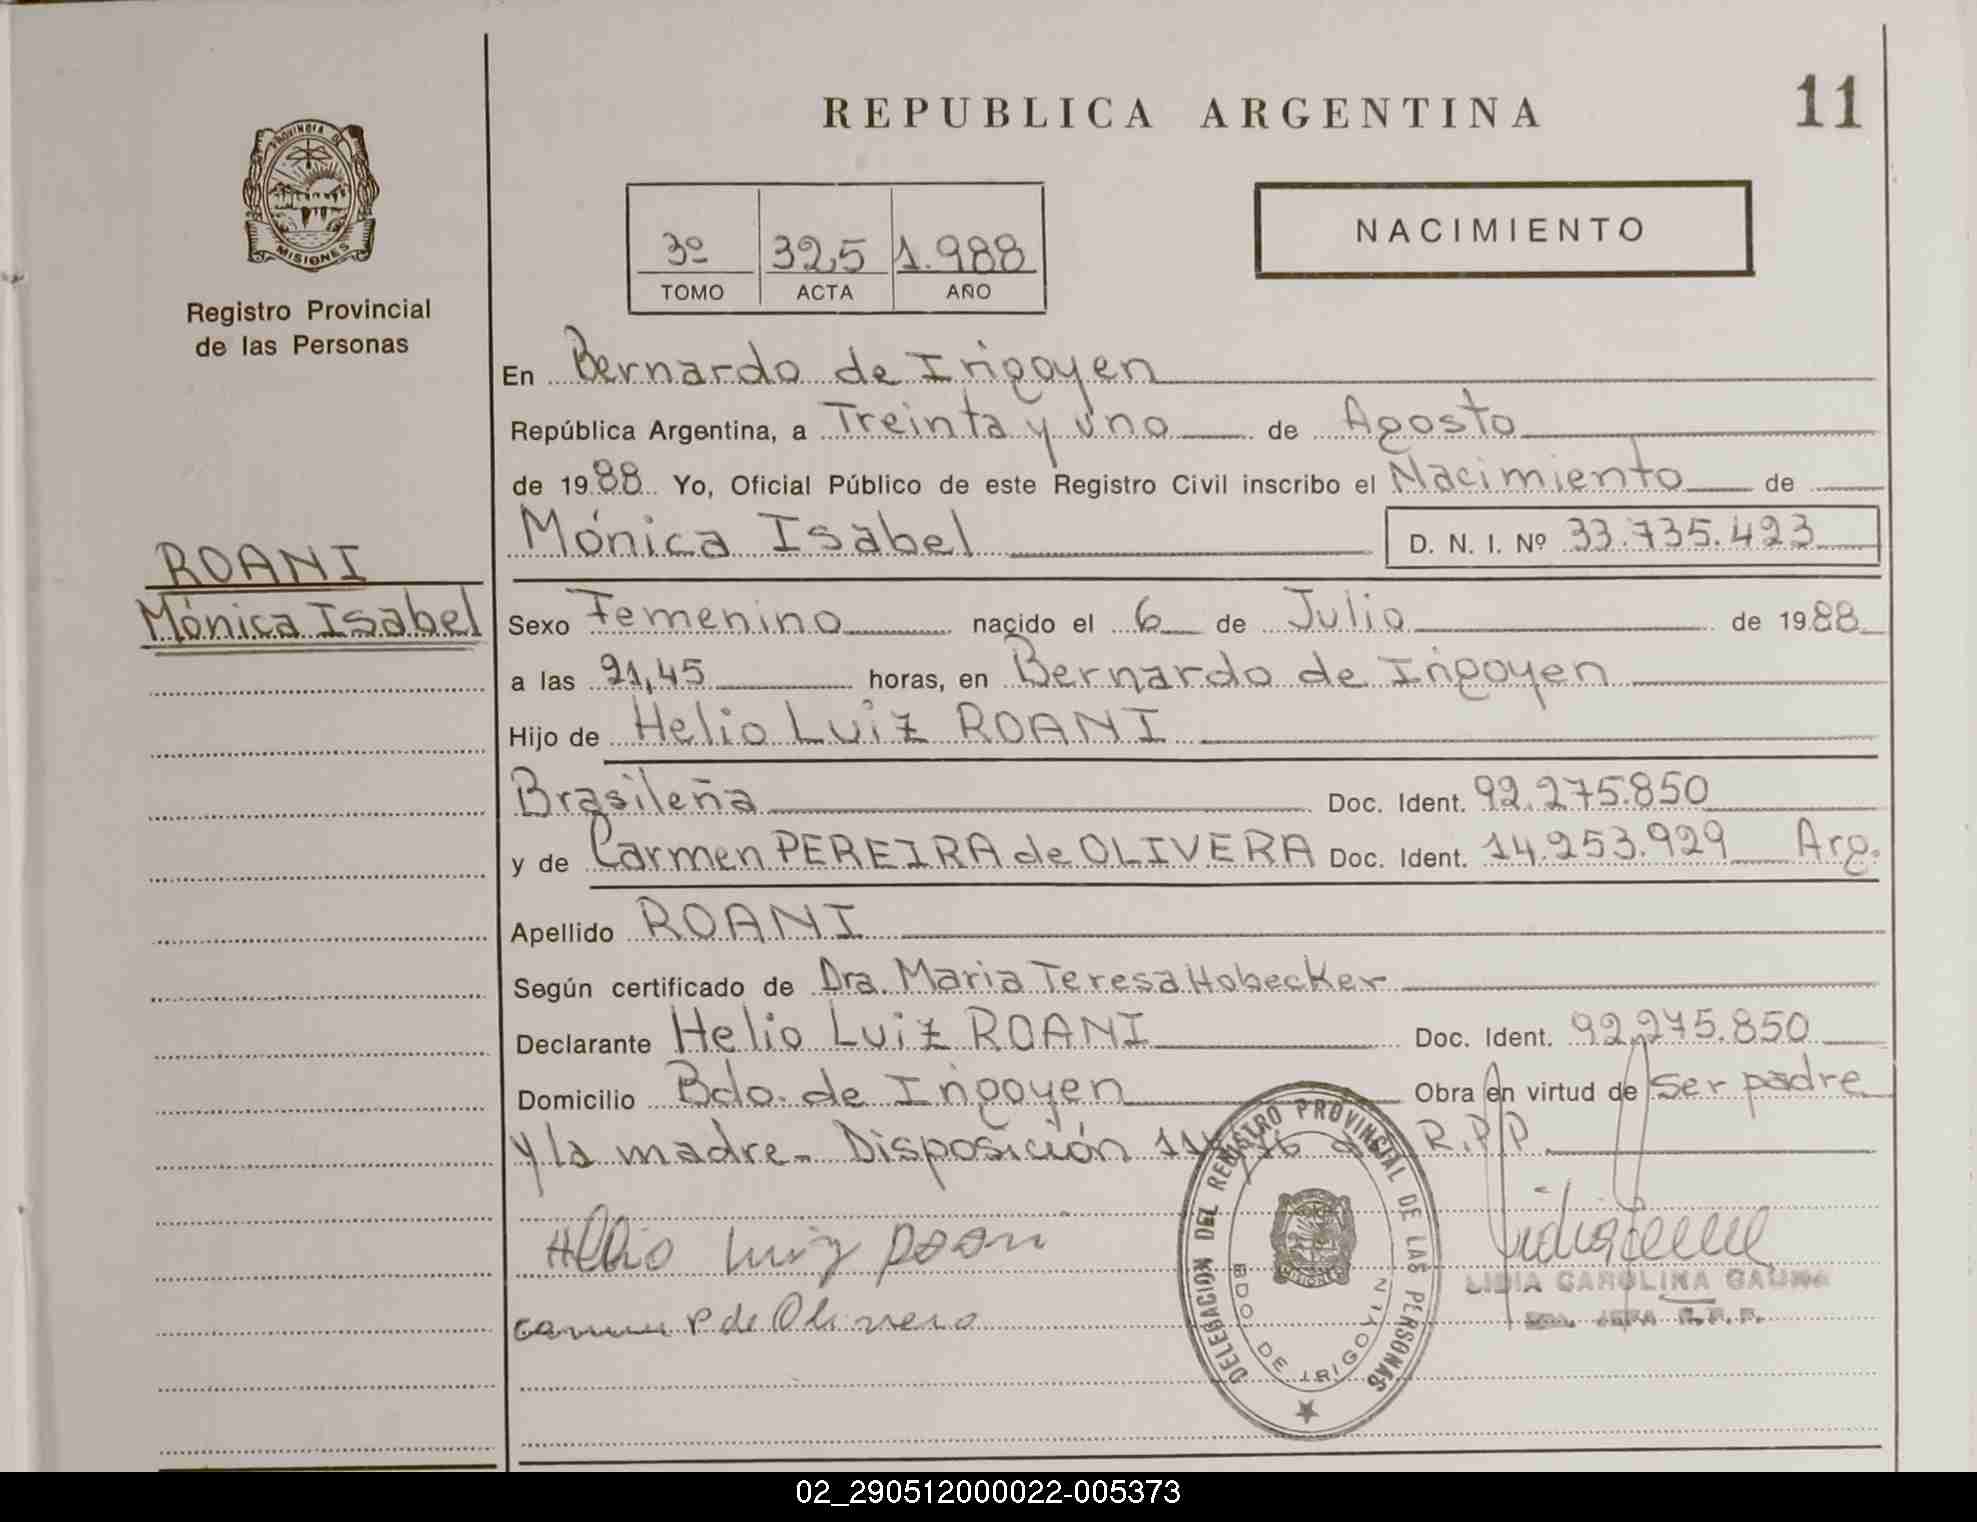 REPUBLICA ARGENTINA
11
PROVINCIA DE
MISIONES
Registro Provincial
de las Personas
3º 325 1.988
TOMO ACTA AÑO
NACIMIENTO
En Bernardo de Irigoyen
República Argentina, a Treinta y uno de Agosto
de 1988 Yo, Oficial Público de este Registro Civil inscribo el Nacimiento de
Mónica Isabel D. N. I. Nº 33.735.423
ROANI
Mónica Isabel
Sexo Femenino nacido el 6 de Julio de 1988
a las 21,45 horas, en Bernardo de Irigoyen
Hijo de Helio Luiz ROANI
Brasileña Doc. Ident. 92.275.850
y de Carmen PEREIRA de OLIVERA Doc. Ident. 14.253.929 Arg.
Apellido ROANI
Según certificado de Dra. Maria Teresa Hobecker
Declarante Helio Luiz ROANI Doc. Ident. 92.275.850
Domicilio Bdo. de Irigoyen Obra en virtud de ser padre
y la madre - Disposición R.P.P.
Helio Luiz Roani
P de Olivera
DELEGACION DEL REGISTRO PROVINCIAL DE LAS PERSONAS
BDO. DE IRIGOYEN
MISIONES
LIDIA CAROLINA GAUNA
JEFA R.P.P.
02_290512000022-005373